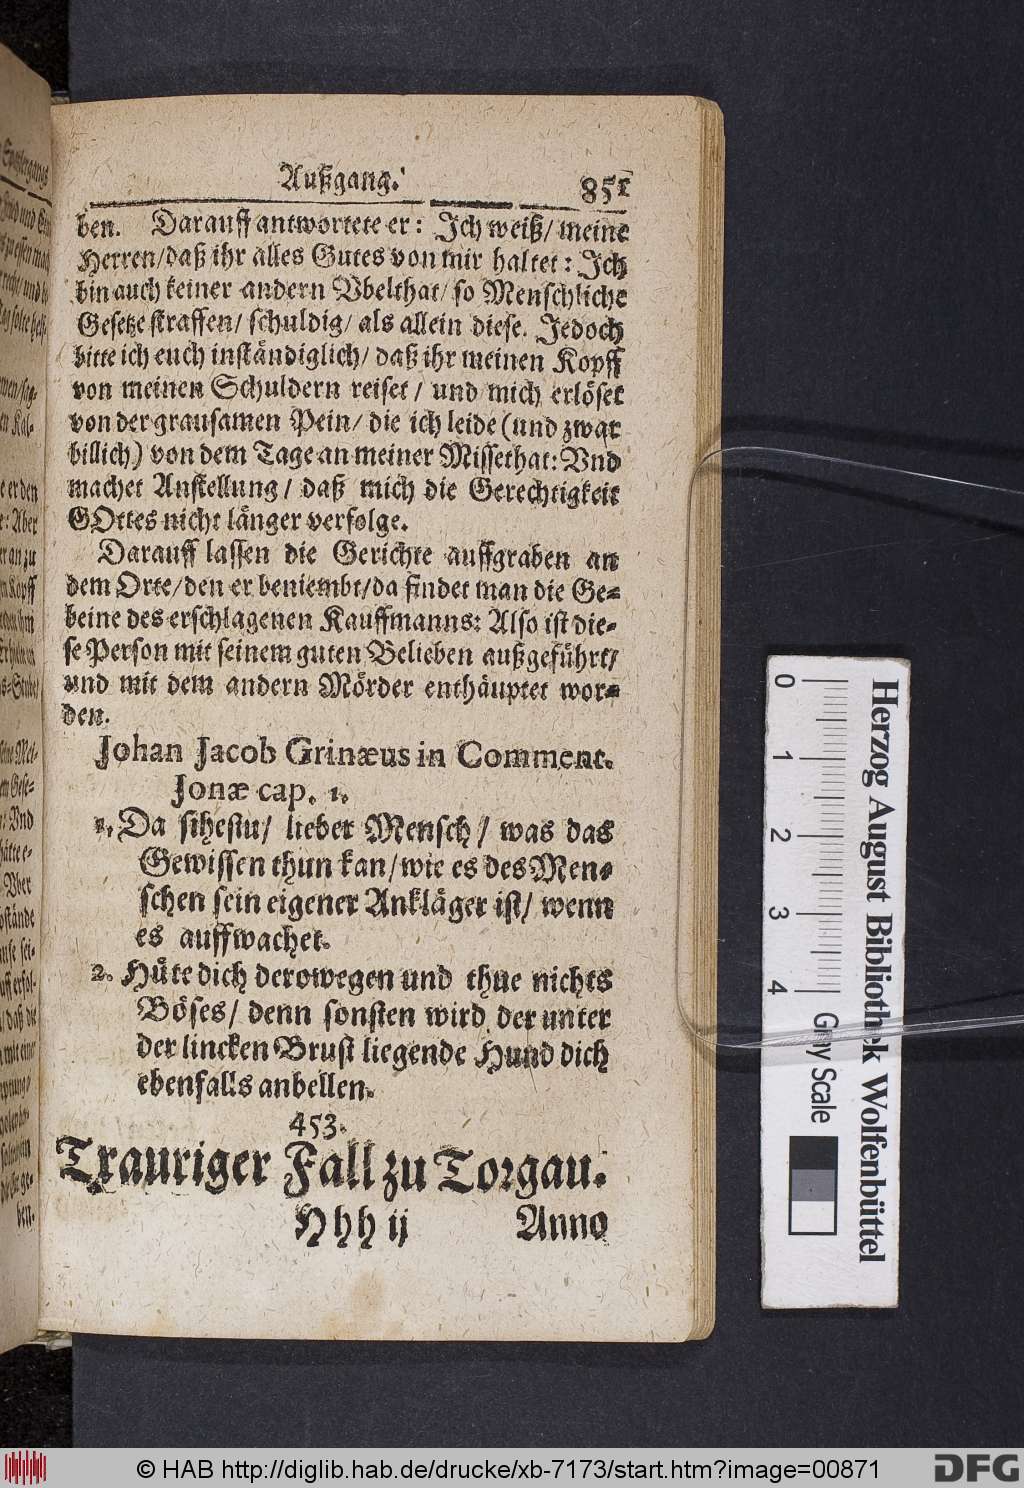 Außgang. 851
ben. Darauff antwortete er: Ich weiß/ meine
Herren/ daß ihr alles Gutes von mir haltet: Ich
bin auch keiner andern Vbelthat/ so Menschliche
Gesetze straffen/ schuldig/ als allein diese. Jedoch
bitte ich euch inständiglich/ daß ihr meinen Kopff
von meinen Schuldern reiset/ und mich erlöset
von der grausamen Pein/ die ich leide (und zwar
billich) von dem Tage an meiner Missethat: Vnd
machet Anstellung/ daß mich die Gerechtigkeit
GOttes nicht länger verfolge.
Darauff lassen die Gerichte auffgraben an
dem Orte/ den er beniembt/ da findet man die Ge-
beine des erschlagenen Kauffmanns: Also ist die-
se Person mit seinem guten Belieben außgeführt/
und mit dem andern Mörder enthäuptet wor-
den.
Johan Jacob Grinæus in Comment.
Jonæ cap. 1.
1. Da sihestu/ lieber Mensch/ was das
Gewissen thun kan/ wie es des Men-
schen sein eigener Ankläger ist/ wenn
es auffwachet.
2. Hüte dich derowegen und thue nichts
Böses/ denn sonsten wird der unter
der lincken Brust liegende Hund dich
ebenfalls anbellen.
453.
Trauriger Fall zu Torgau.
Hhh ij Anno
0 1 2 3 4
Gray Scale
Herzog August Bibliothek Wolfenbüttel
© HAB http://diglib.hab.de/drucke/xb-7173/start.htm?image=00871
DFG